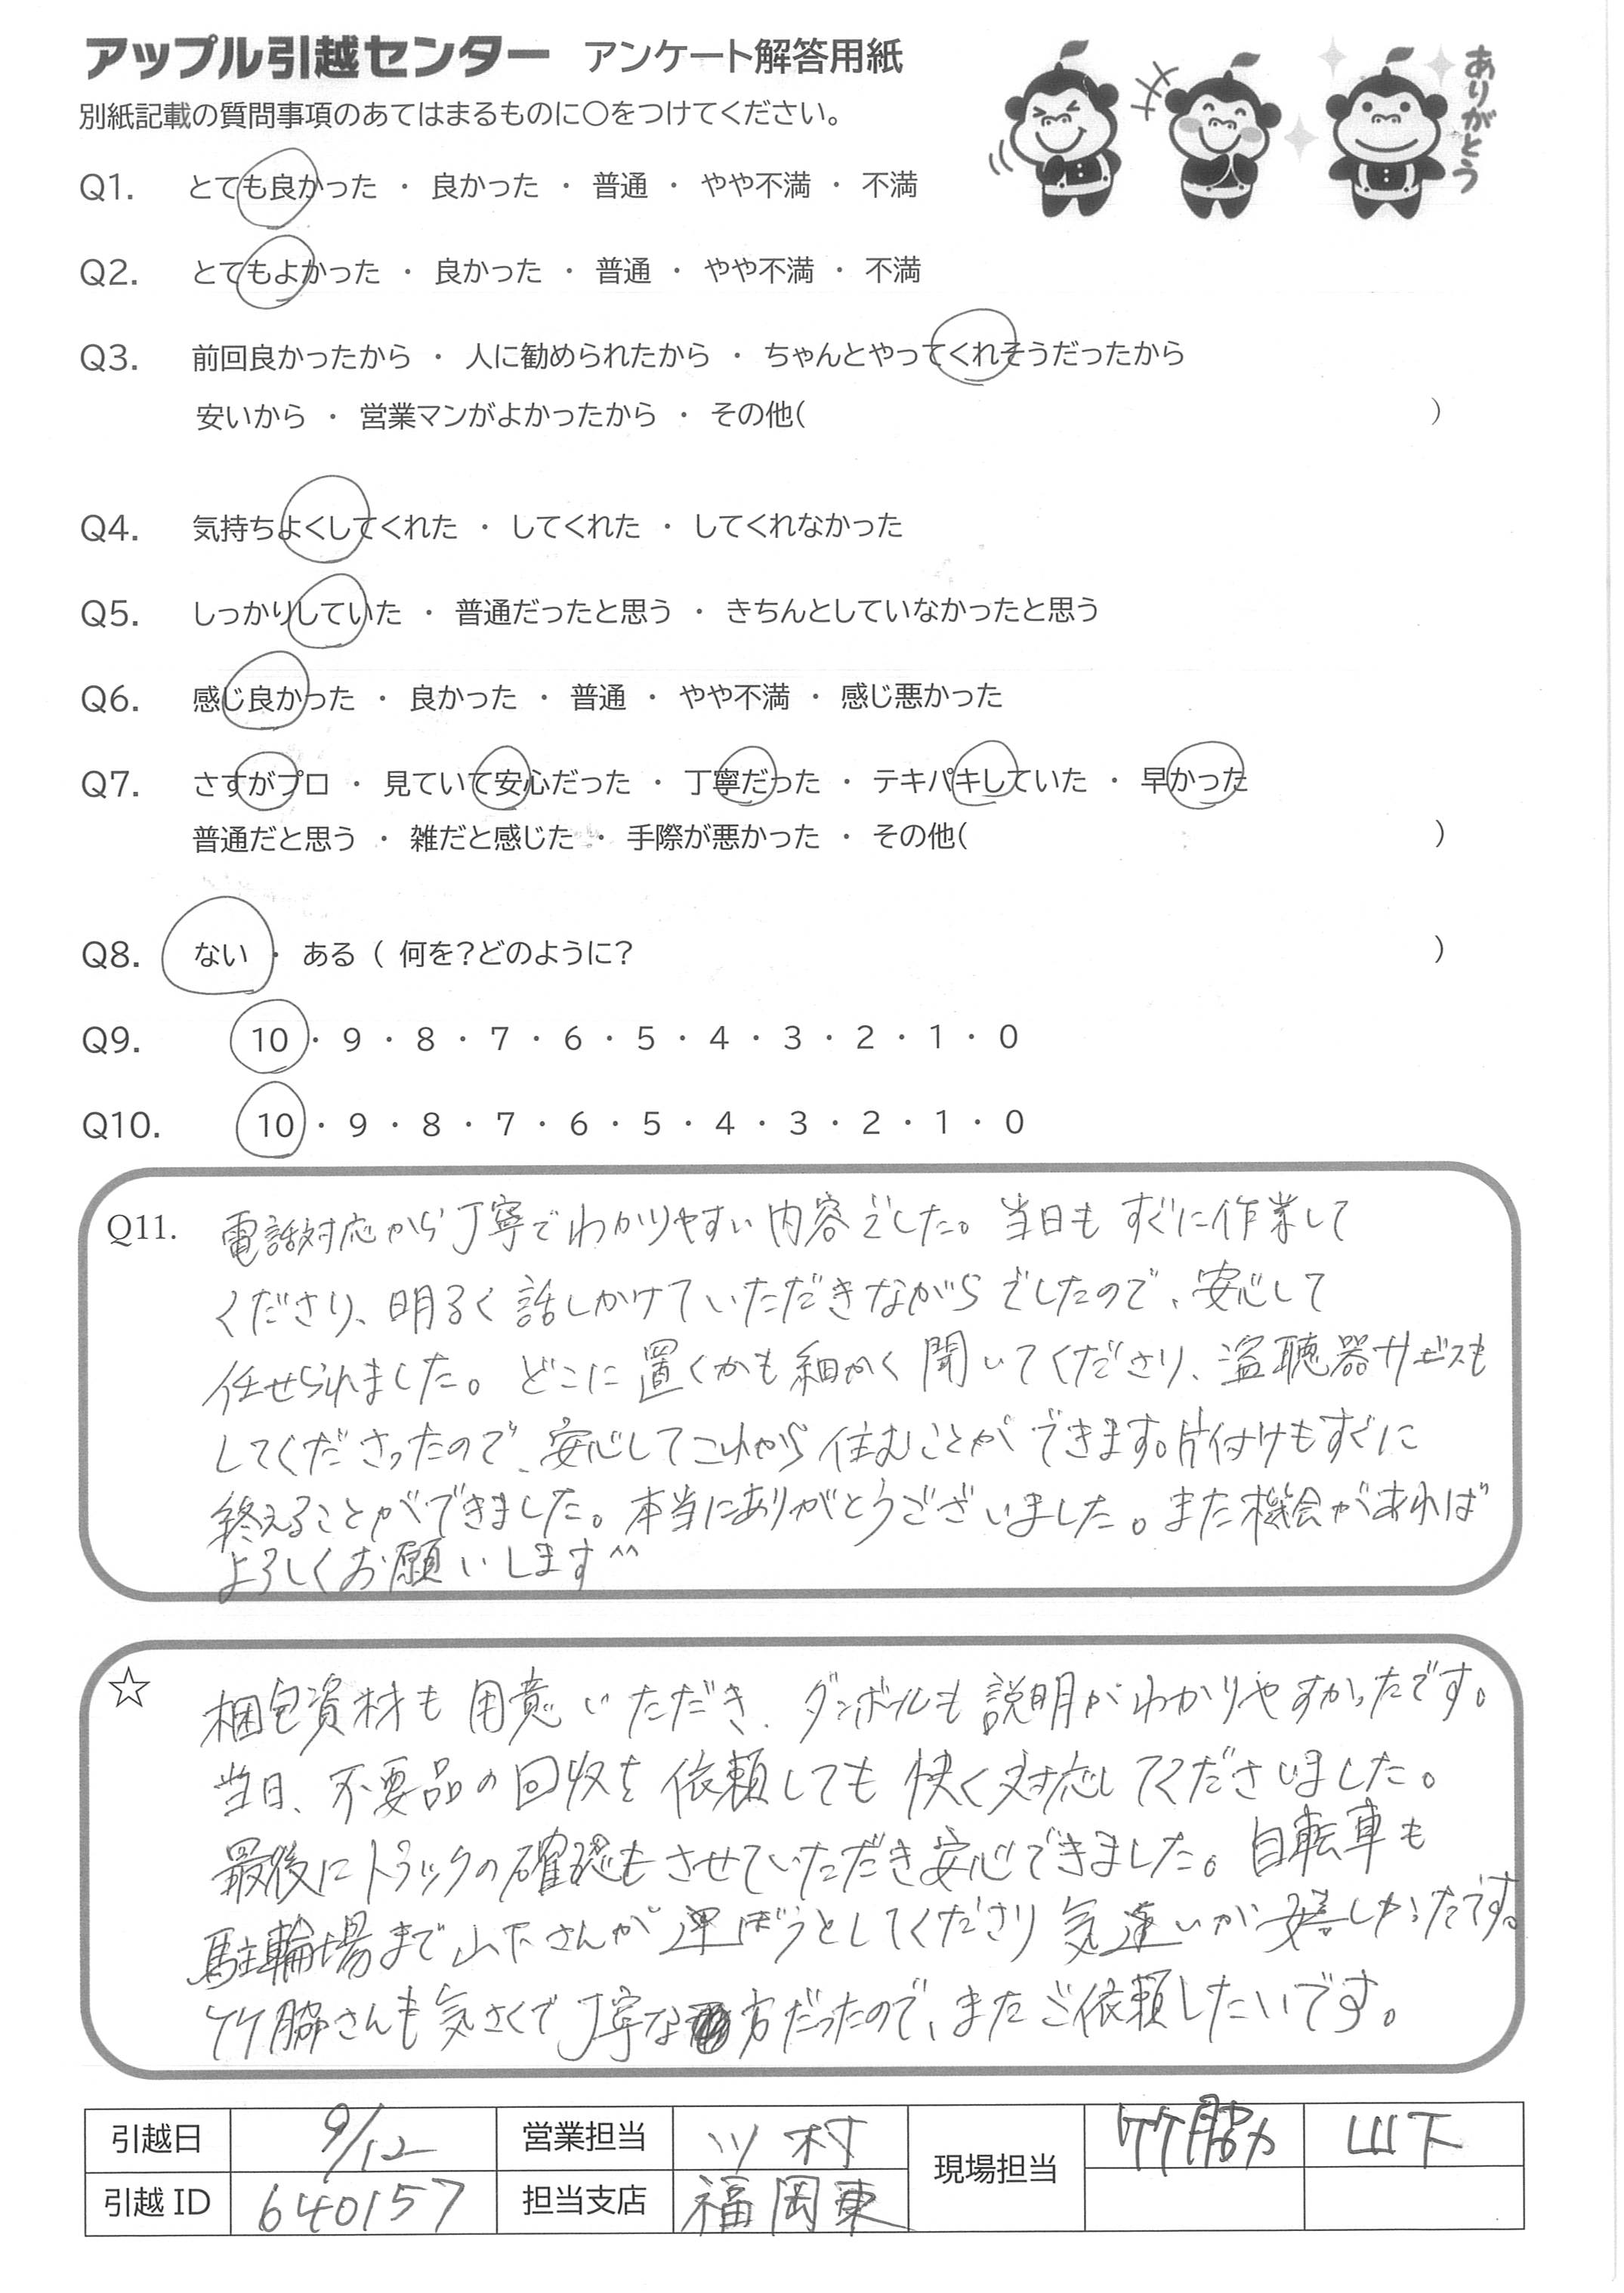 アップル引越センター アンケート解答用紙
ありがとう
別紙記載の質問事項のあてはまるものに○をつけてください。
Q1. とても良かった ・ 良かった ・ 普通 ・ やや不満 ・ 不満
Q2. とてもよかった ・ 良かった ・ 普通 ・ やや不満 ・ 不満
Q3. 前回良かったから ・ 人に勧められたから ・ ちゃんとやってくれそうだったから
安いから ・ 営業マンがよかったから ・ その他( )
Q4. 気持ちよくしてくれた ・ してくれた ・ してくれなかった
Q5. しっかりしていた ・ 普通だったと思う ・ きちんとしていなかったと思う
Q6. 感じ良かった ・ 良かった ・ 普通 ・ やや不満 ・ 感じ悪かった
Q7. さすがプロ ・ 見ていて安心だった ・ 丁寧だった ・ テキパキしていた ・ 早かった
普通だと思う ・ 雑だと感じた ・ 手際が悪かった ・ その他( )
Q8. ない ・ ある ( 何を？どのように？ )
Q9. 10 ・ 9 ・ 8 ・ 7 ・ 6 ・ 5 ・ 4 ・ 3 ・ 2 ・ 1 ・ 0
Q10. 10 ・ 9 ・ 8 ・ 7 ・ 6 ・ 5 ・ 4 ・ 3 ・ 2 ・ 1 ・ 0
Q11. 電話対応から丁寧でわかりやすい内容でした。当日もすぐに作業して
くださり、明るく話しかけていただきながらでしたので、安心して
任せられました。どこに置くかも細かく聞いてくださり、盗聴器サービスも
してくださったので、安心してこれから住むことができます。片付けもすぐに
終えることができました。本当にありがとうございました。また機会があれば
よろしくお願いします^^
☆ 梱包資材も用意いただき、ダンボールも説明がわかりやすかったです。
当日、不要品の回収を依頼しても快く対応してくださいました。
最後にトラックの確認もさせていただき安心できました。自転車も
駐輪場まで山下さんが運ぼうとしてくださり気遣いが嬉しかったです。
竹脇さんも気さくで丁寧な方だったので、またご依頼したいです。
引越日 9/12 営業担当 ツ村 現場担当 竹脇 山下
引越ID 640157 担当支店 福岡東